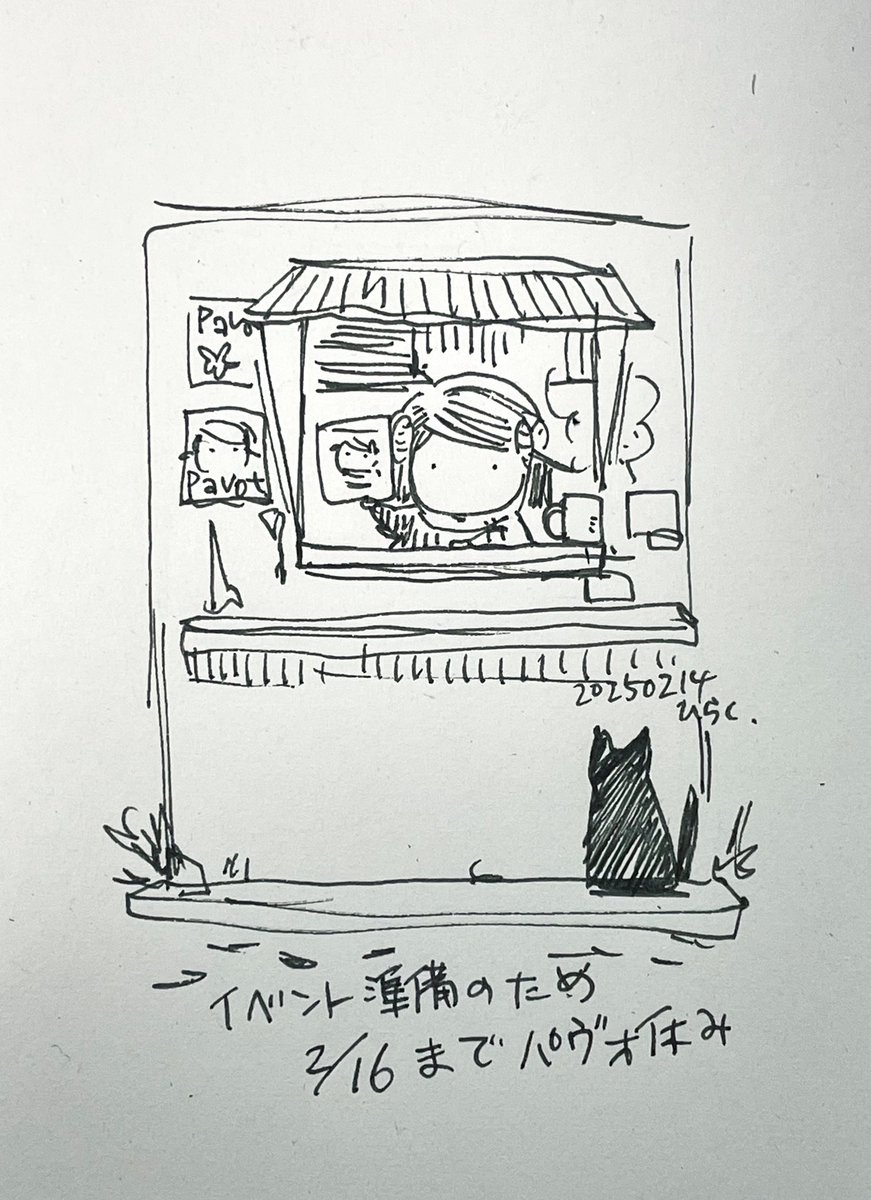 Pavot
Pavot
20250214
ひらく.
イベント準備のため
2/16までパヴォ休み